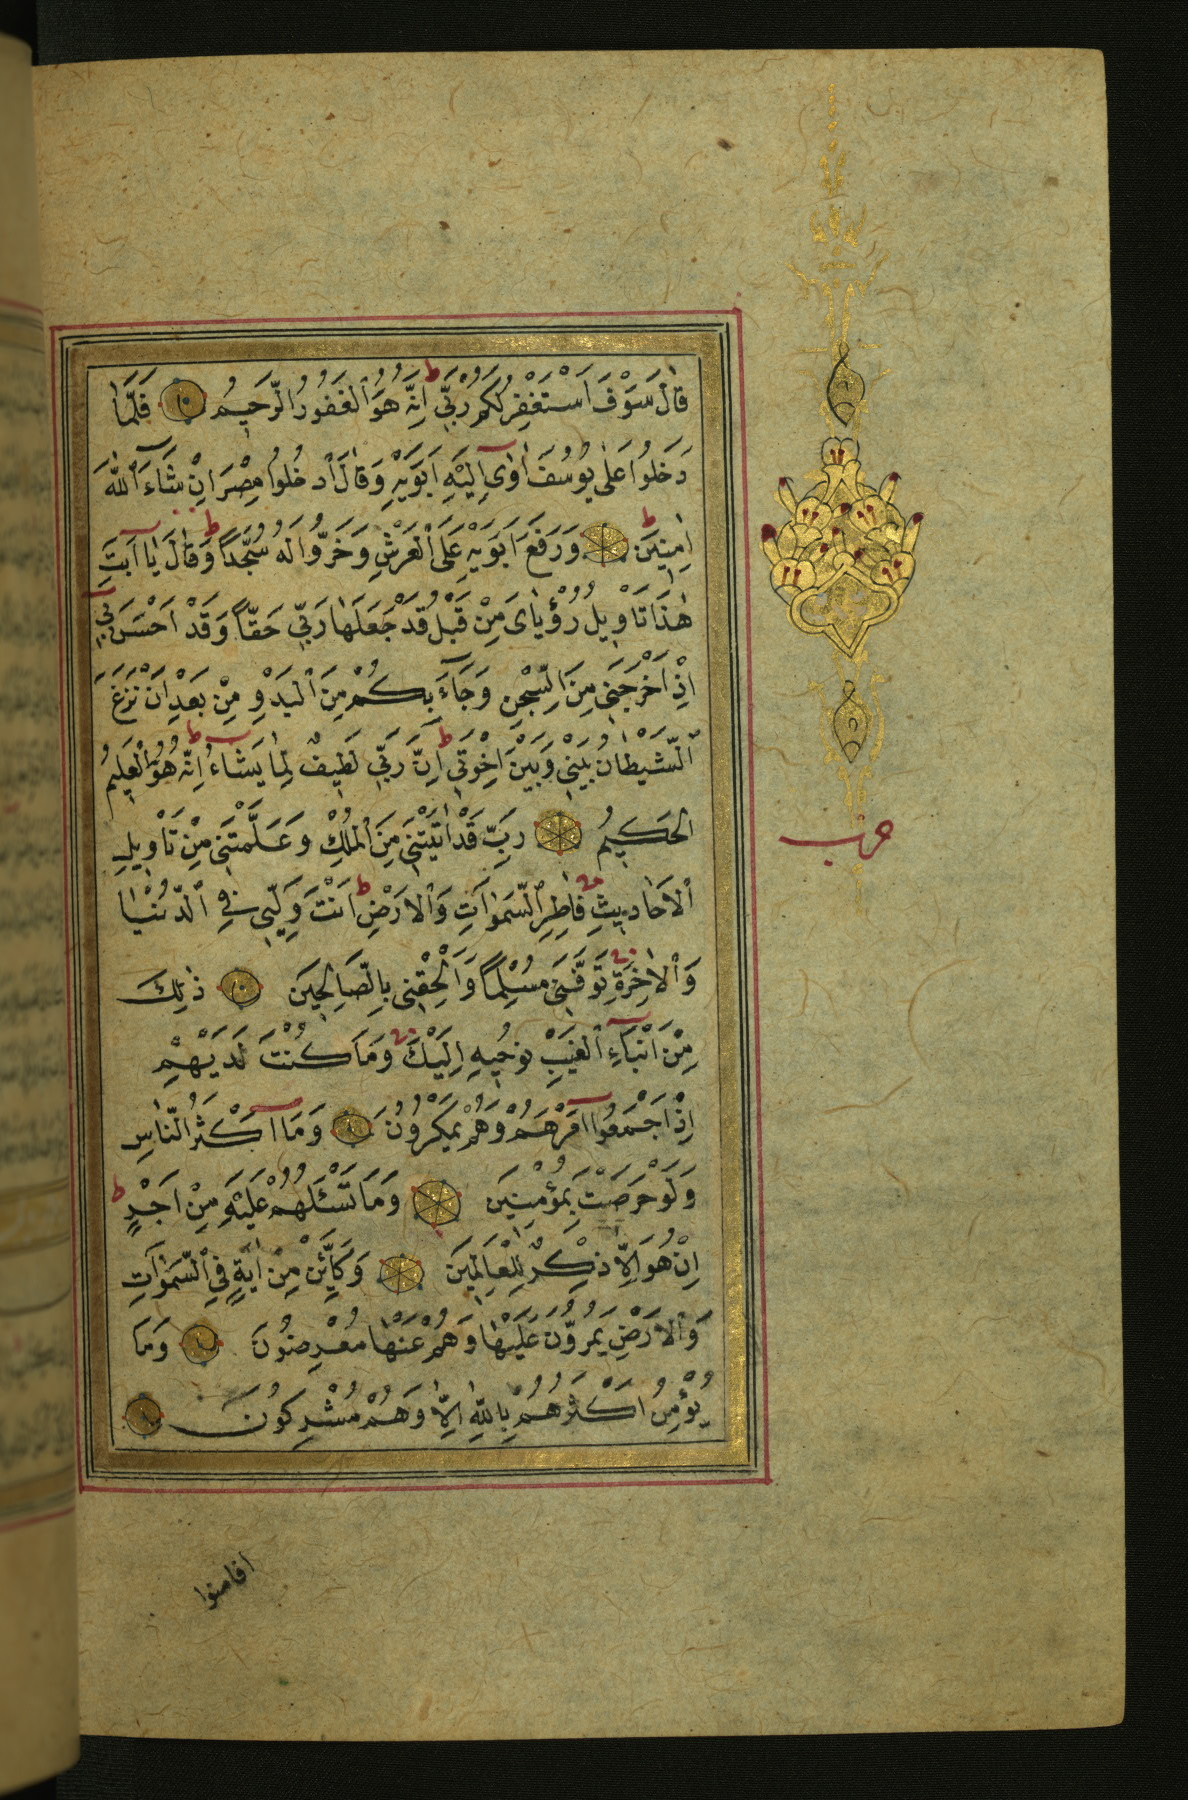 قَالَ سَوْفَ اَسْتَغْفِرُ لَكُمْ رَبِّي ط اِنَّهُ هُوَ الْغَفُورُ الرَّحِيمُ فَلَمَّا
دَخَلُوا عَلٰى يُوسُفَ اٰوٰى اِلَيْهِ اَبَوَيْهِ وَقَالَ ادْخُلُوا مِصْرَ اِنْ شَآءَ اللّٰهُ
اٰمِنِينَ ط وَرَفَعَ اَبَوَيْهِ عَلَى الْعَرْشِ وَخَرُّوا لَهُ سُجَّدًا ط وَقَالَ يَا اَبَتِ
هٰذَا تَاْوِيلُ رُؤْيَايَ مِنْ قَبْلُ قَدْ جَعَلَهَا رَبِّي حَقًّا وَقَدْ اَحْسَنَ بِي
اِذْ اَخْرَجَنِي مِنَ السِّجْنِ وَجَآءَ بِكُمْ مِنَ الْبَدْوِ مِنْ بَعْدِ اَنْ نَزَغَ
الشَّيْطَانُ بَيْنِي وَبَيْنَ اِخْوَتِي ط اِنَّ رَبِّي لَطِيفٌ لِمَا يَشَآءُ ط اِنَّهُ هُوَ الْعَلِيمُ
الْحَكِيمُ رَبِّ قَدْ اٰتَيْتَنِي مِنَ الْمُلْكِ وَعَلَّمْتَنِي مِنْ تَاْوِيلِ
حزب
الْاَحَادِيثِ فَاطِرَ السَّمٰوَاتِ وَالْاَرْضِ ط اَنْتَ وَلِيِّي فِي الدُّنْيَا
وَالْاٰخِرَةِ تَوَفَّنِي مُسْلِمًا وَاَلْحِقْنِي بِالصَّالِحِينَ ذٰلِكَ
مِنْ اَنْبَآءِ الْغَيْبِ نُوحِيهِ اِلَيْكَ وَمَا كُنْتَ لَدَيْهِمْ
اِذْ اَجْمَعُوا اَمْرَهُمْ وَهُمْ يَمْكُرُونَ وَمَا اَكْثَرُ النَّاسِ
وَلَوْ حَرَصْتَ بِمُؤْمِنِينَ وَمَا تَسْئَلُهُمْ عَلَيْهِ مِنْ اَجْرٍ ط
اِنْ هُوَ اِلَّا ذِكْرٌ لِلْعَالَمِينَ وَكَاَيِّنْ مِنْ اٰيَةٍ فِي السَّمٰوَاتِ
وَالْاَرْضِ يَمُرُّونَ عَلَيْهَا وَهُمْ عَنْهَا مُعْرِضُونَ وَمَا
يُؤْمِنُ اَكْثَرُهُمْ بِاللّٰهِ اِلَّا وَهُمْ مُشْرِكُونَ
افامنوا